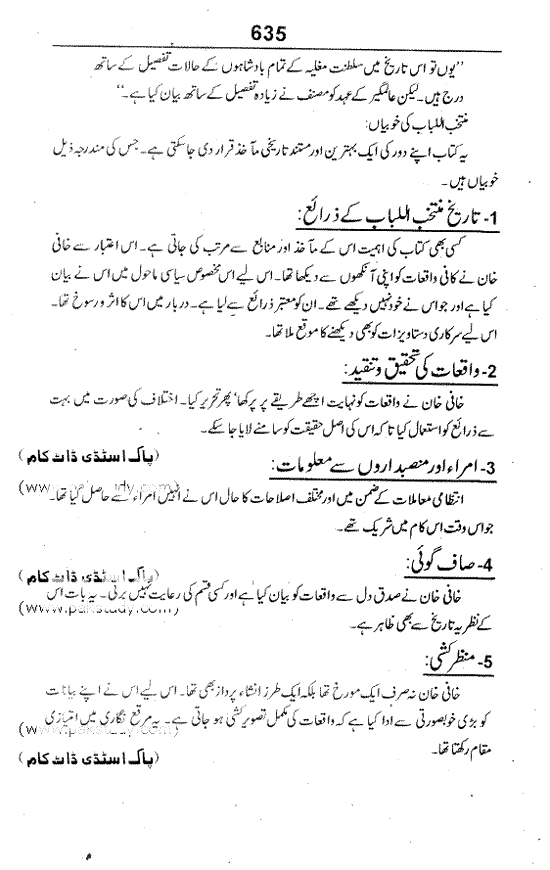 635
’’یوں تو اس تاریخ میں سلطنت مغلیہ کے تمام بادشاہوں کے حالات تفصیل کے ساتھ
درج ہیں۔ لیکن عالمگیر کے عہد کو مصنف نے زیادہ تفصیل کے ساتھ بیان کیا ہے۔‘‘
منتخب اللباب کی خوبیاں:
یہ کتاب اپنے دور کی ایک بہترین اور مستند تاریخی مآخذ قرار دی جا سکتی ہے۔ جس کی مندرجہ ذیل
خوبیاں ہیں۔
1- تاریخ منتخب اللباب کے ذرائع:
کسی بھی کتاب کی اہمیت اس کے مآخذ اور منابع سے مرتب کی جاتی ہے۔ اس اعتبار سے خافی
خان نے کافی واقعات کو اپنی آنکھوں سے دیکھا تھا۔ اس لیے اس مخصوص سیاسی ماحول میں اس نے بیان
کیا ہے اور جو اس نے خود نہیں دیکھے تھے۔ ان کو معتبر ذرائع سے لیا ہے۔ دربار میں اس کا اثر و رسوخ تھا۔
اس لیے سرکاری دستاویزات کو بھی دیکھنے کا موقع ملا تھا۔
2- واقعات کی تحقیق و تنقید:
خافی خان نے واقعات کو نہایت اچھے طریقے پر پرکھا‘ پھر تحریر کیا۔ اختلاف کی صورت میں بہت
سے ذرائع کو استعمال کیا تا کہ اس کی اصل حقیقت کو سامنے لایا جا سکے۔
(پاک اسٹڈی ڈاٹ کام)
3- امراء اور منصبداروں سے معلومات:
انتظامی معاملات کے ضمن میں اور مختلف اصلاحات کا حال اس نے انہیں امراء سے حاصل کیا تھا۔
جو اس وقت اس کام میں شریک تھے۔
4- صاف گوئی:
(پاک اسٹڈی ڈاٹ کام)
خافی خان نے صدق دل سے واقعات کو بیان کیا ہے اور کسی قسم کی رعایت نہیں برتی۔ یہ بات اس
(www.pakstudy.com)
کے نظریہ تاریخ سے بھی ظاہر ہے۔
5- منظر کشی:
خافی خان نہ صرف ایک مورخ تھا بلکہ ایک طرز انشاء پرداز بھی تھا۔ اس لیے اس نے اپنے بیانات
کو بڑی خوبصورتی سے ادا کیا ہے کہ واقعات کی مکمل تصویر کشی ہو جاتی ہے۔ یہ مرقع نگاری میں امتیازی
(www.pakstudy.com)
مقام رکھتا تھا۔
(پاک اسٹڈی ڈاٹ کام)